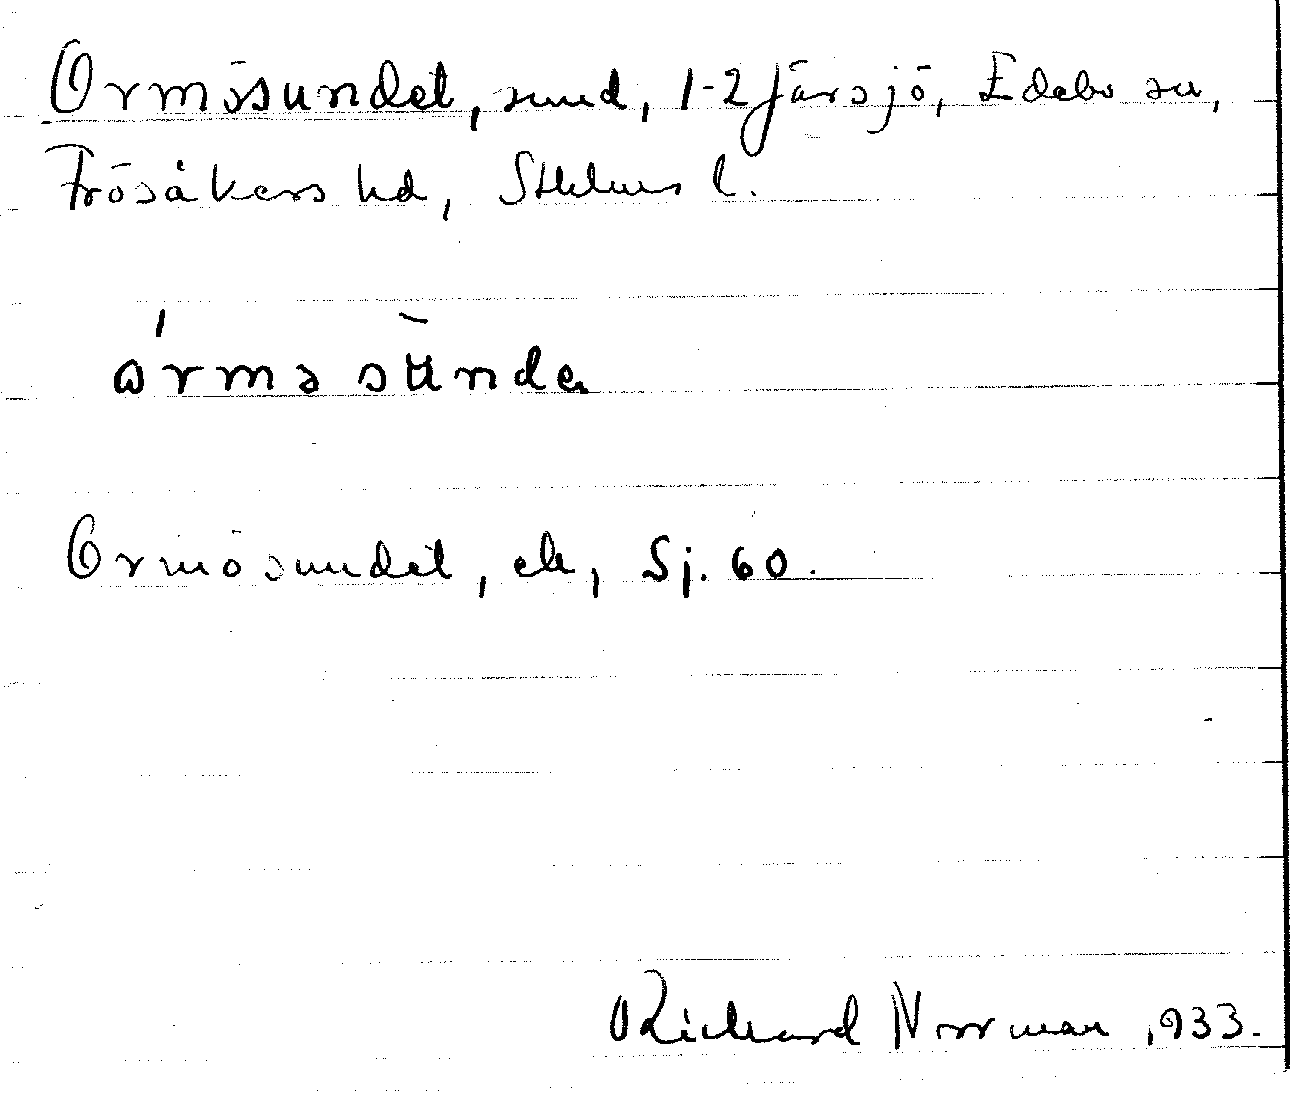 Ormösundet, sund, 1-2 Järsjö, Edebo sn,
Frösåkers hd, Sthlms l.
órmǝsŭndɐ
Ormösundet, ek, Sj. 60.
Richard Norrman 1933.